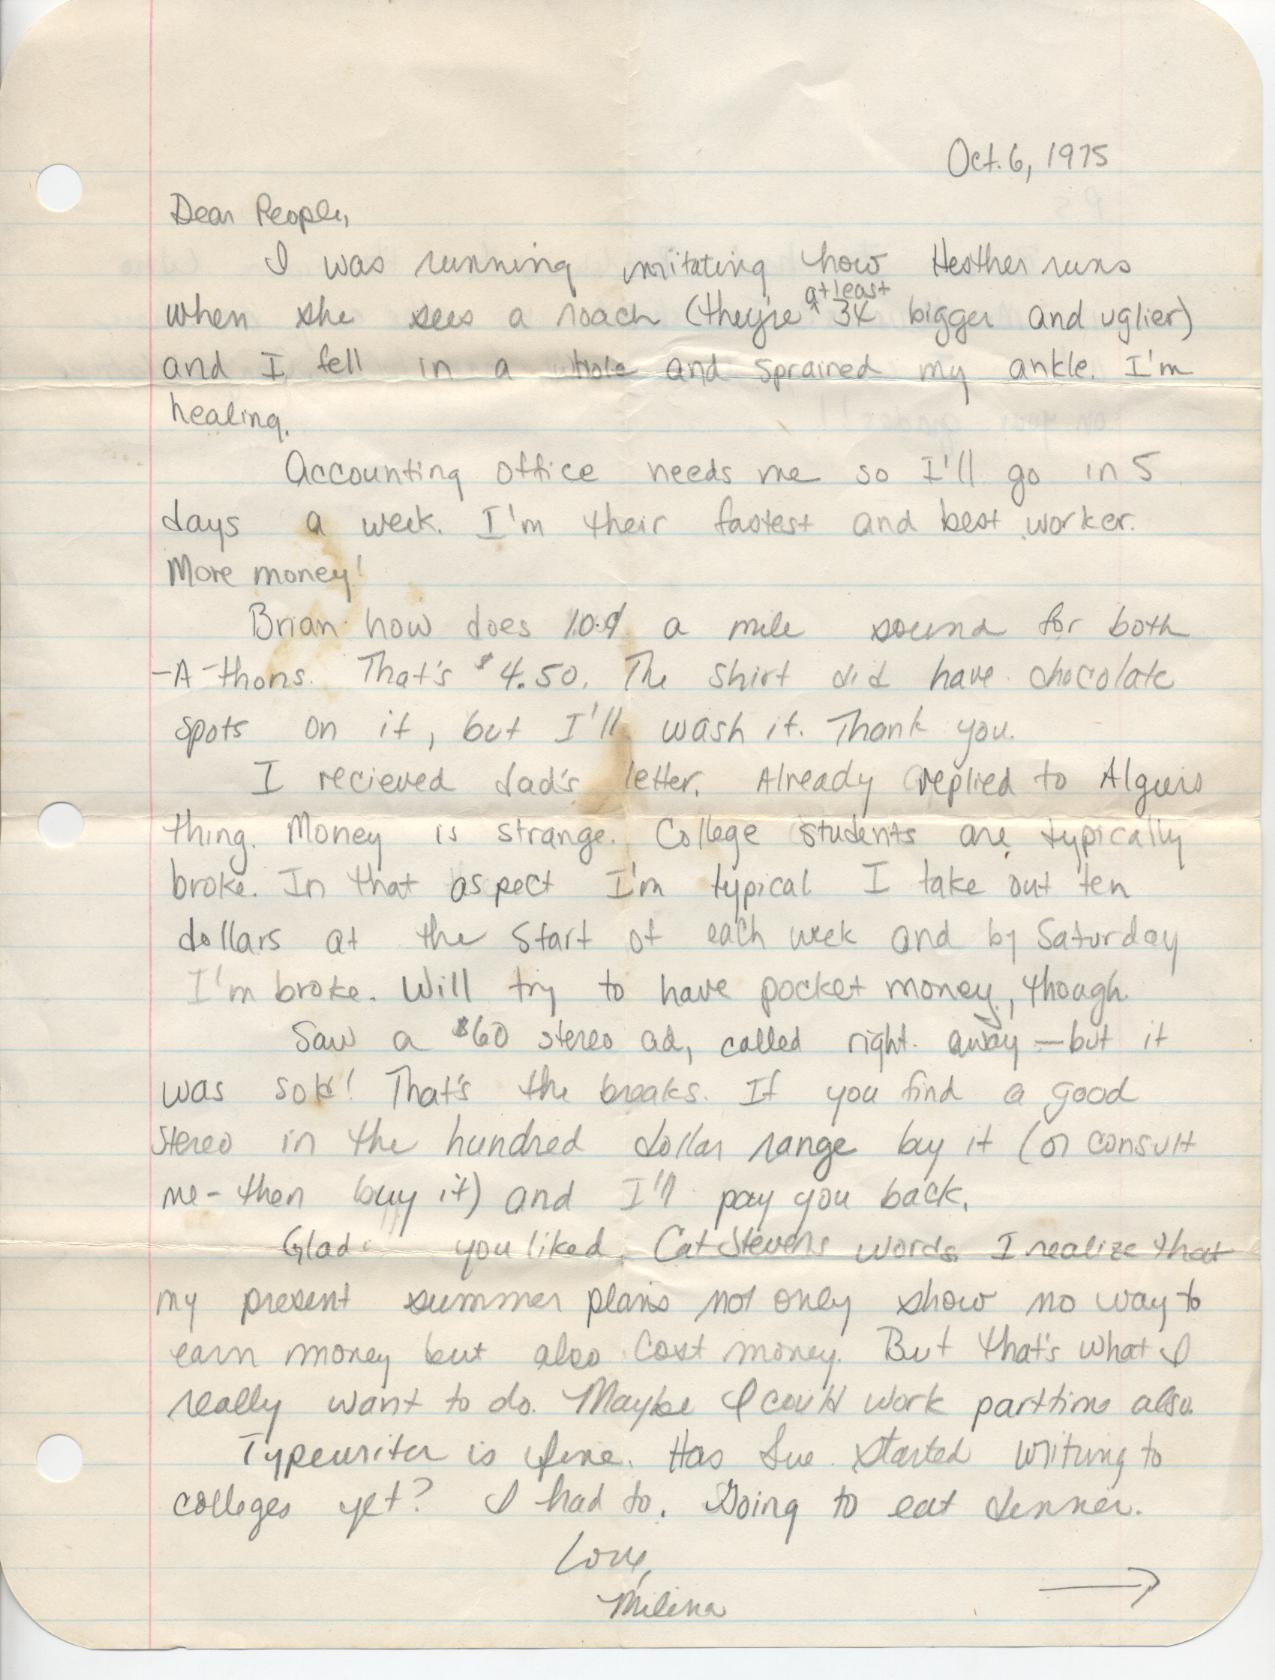 Oct. 6, 1975
Dear People,
I was running imitating how Heather runs
when she sees a roach (they're at least 3X bigger and uglier)
and I fell in a hole and sprained my ankle. I'm
healing.
Accounting office needs me so I'll go in 5
days a week. I'm their fastest and best worker.
More money!
Brian how does 10¢ a mile sound for both
-A-thons. That's $4.50. The shirt did have chocolate
spots on it, but I'll wash it. Thank you.
I recieved dad's letter. Already replied to
thing. Money is strange. College students are typically
broke. In that aspect I'm typical I take out ten
dollars at the start of each week and by Saturday
I'm broke. Will try to have pocket money, though.
Saw a $60 stereo ad, called right away — but it
was sold! That's the breaks. If you find a good
stereo in the hundred dollar range buy it (or consult
me - then buy it) and I'll pay you back.
Glad you liked Cat Stevens words. I realize that
my present summer plans not only show no way to
earn money but also cost money. But that's what I
really want to do. Maybe I could work parttime also.
Typewriter is fine. Has Sue started writing to
colleges yet? I had to. Going to eat dinner.
Love,
Milena
→